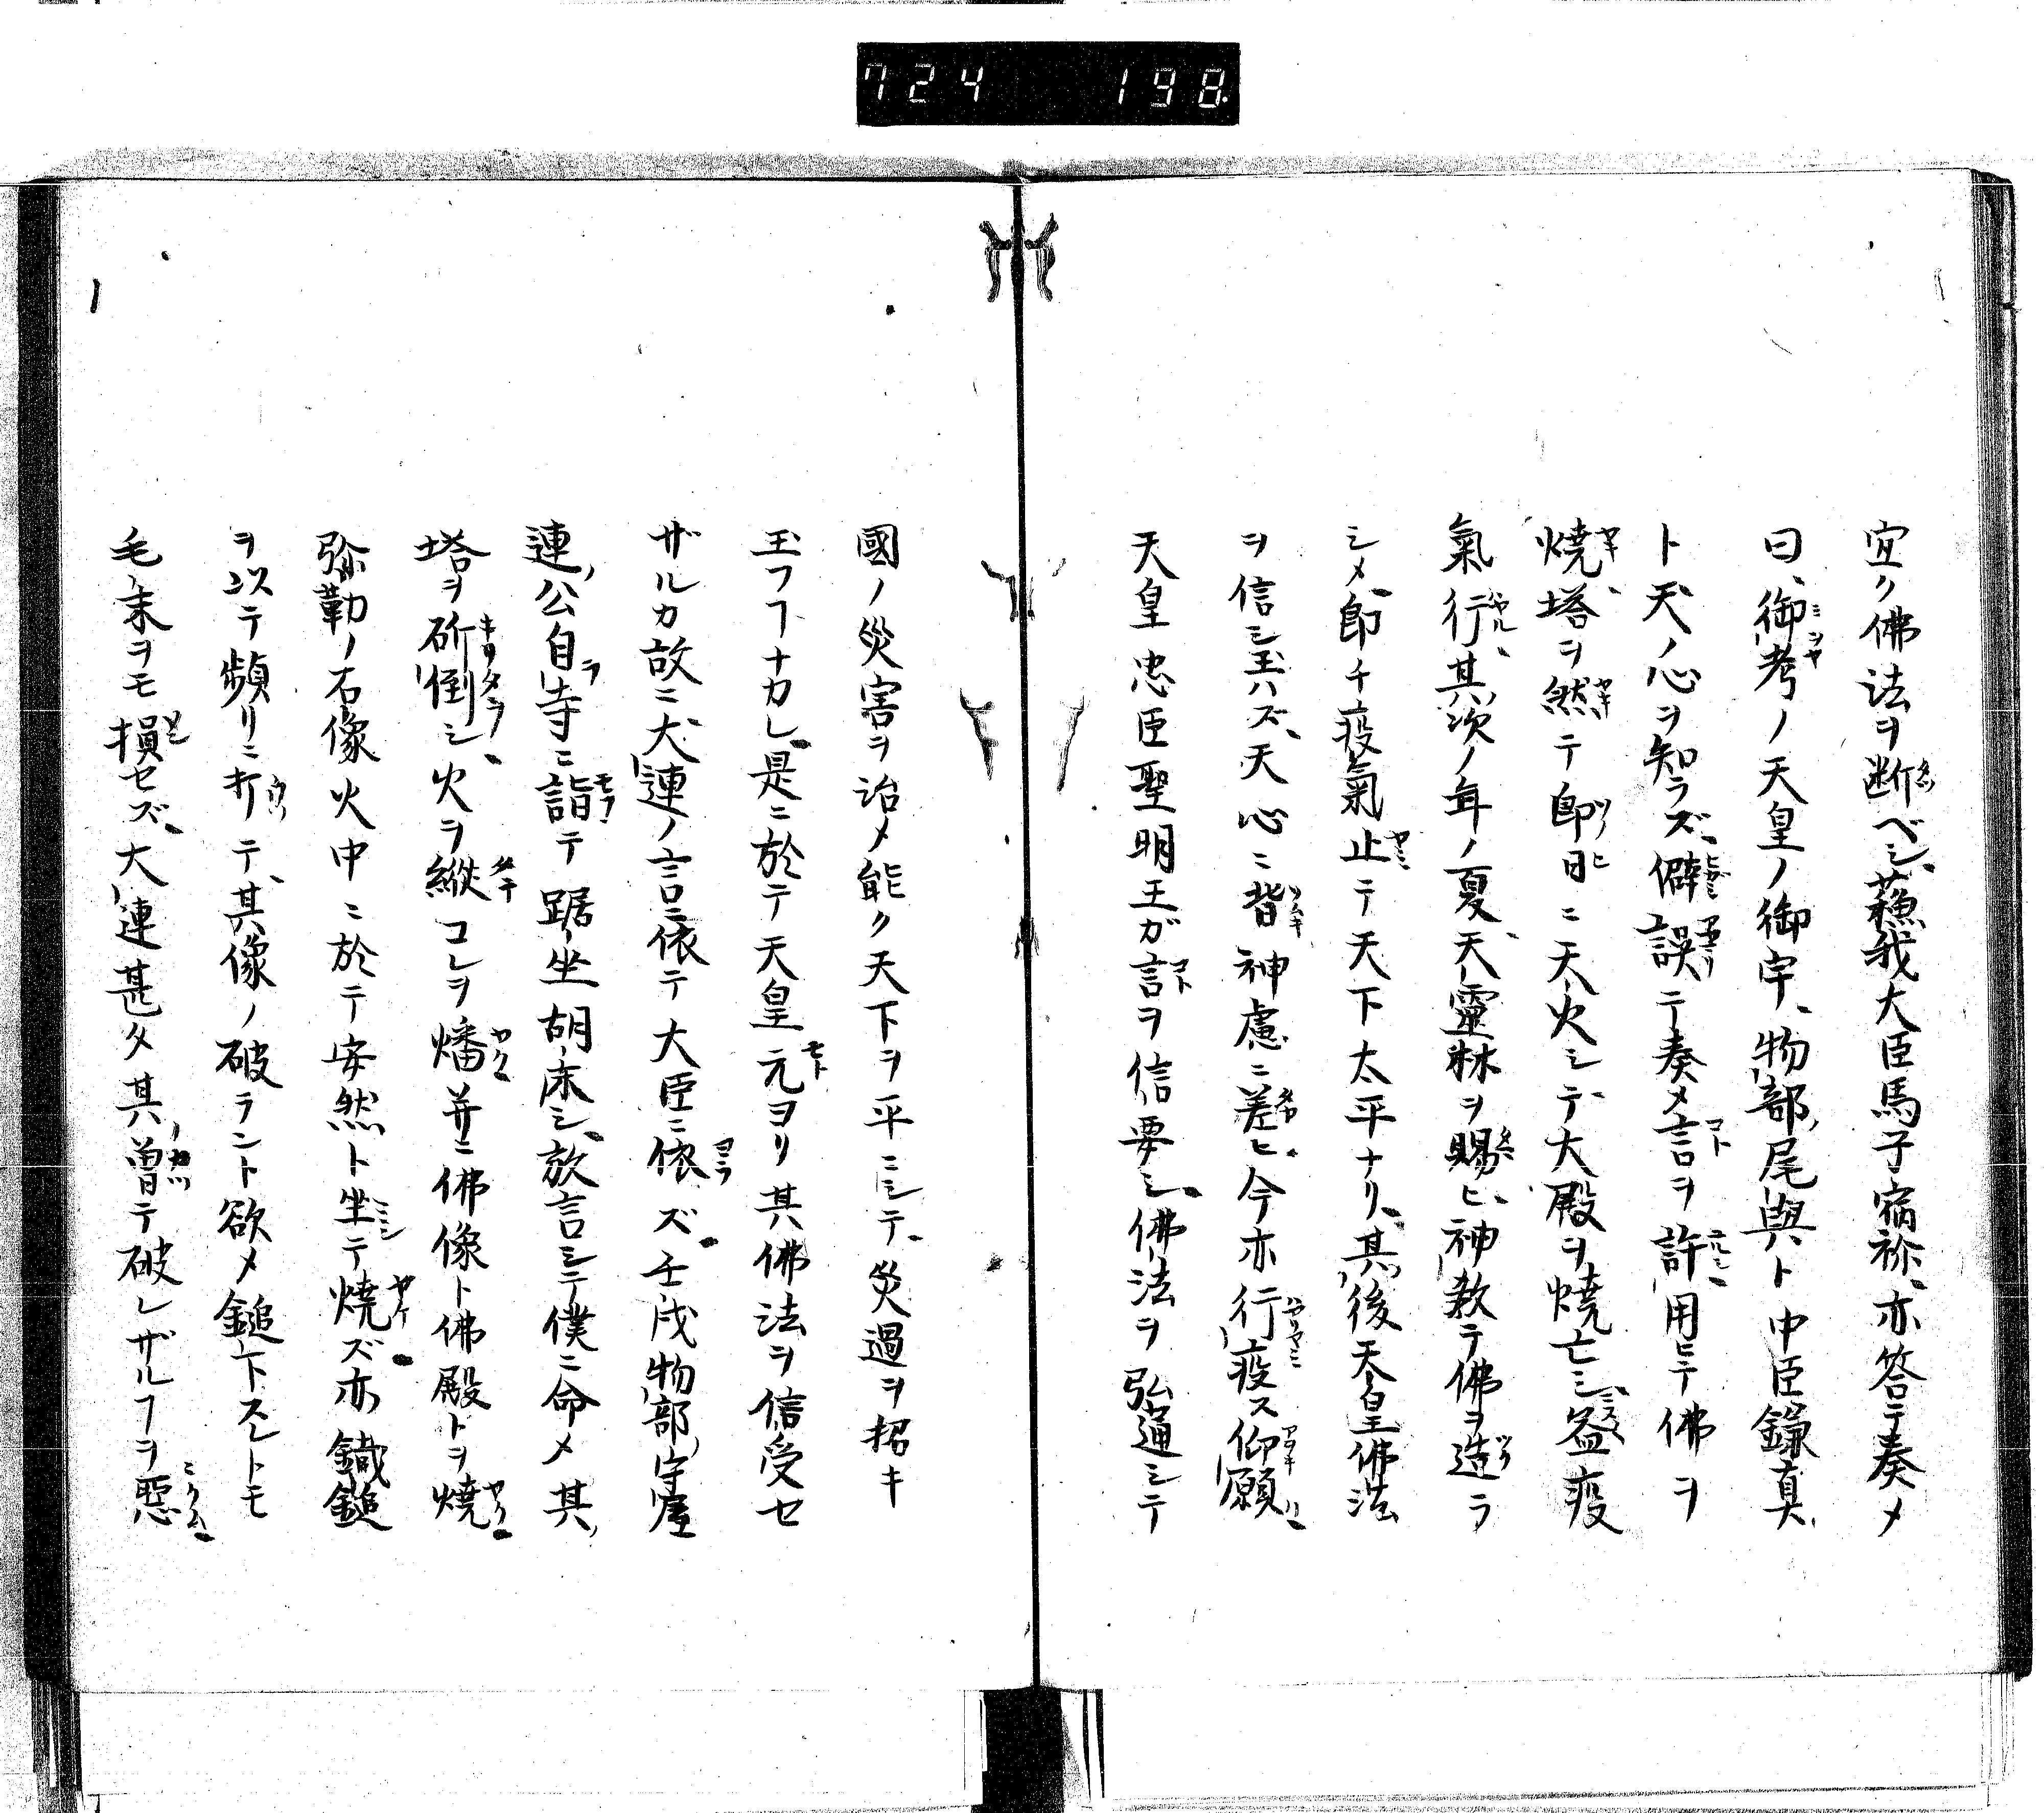 724 198
宜ク佛法ヲ断ベシ、蘓我大臣馬子宿祢、亦答テ奏メ
曰、御考ノ天皇ノ御宇、物部ノ尾輿ト中臣ノ鎌真
ト天ノ心ヲ知ラズ、僻誤テ奏メ言ヲ許用ヒテ佛ヲ
焼、塔ヲ然テ即日ニ天火シテ、大殿ヲ焼亡シ、益疫
氣行、其次ノ年ノ夏、天靈林ヲ賜ヒ、神教テ佛ヲ造ラ
シメ、即チ疫氣止テ天下太平ナリ、其後天皇佛法
ヲ信シ玉ハズ、天心ニ背神慮ニ差ヒ、今亦行疫ス、仰願ハ
天皇忠臣聖明王ガ言ヲ信要シ、佛法ヲ弘通シテ
國ノ災害ヲ治メ能ク天下ヲ平ニシテ、災過ヲ招キ
玉フヿナカレ、是ニ於テ天皇元ヨリ其佛法ヲ信受セ
ザルカ故ニ大連ノ言ニ依テ大臣ニ依ズ、壬戌物部ノ守屋
連ノ公自寺ニ詣テ踞坐胡床シ、放言シテ僕ニ命メ其ノ
塔ヲ斫倒シ、火ヲ縱コレヲ燔、并ニ佛像ト佛殿トヲ焼
弥勒ノ石像火中ニ於テ安然ト坐テ焼ズ、亦鐵鎚
ヲ以テ頻リニ打テ、其像ノ破ラント欲メ鎚下スレトモ
毛末ヲモ損セズ、大連甚タ其ノ曽テ破レザルヿヲ惡